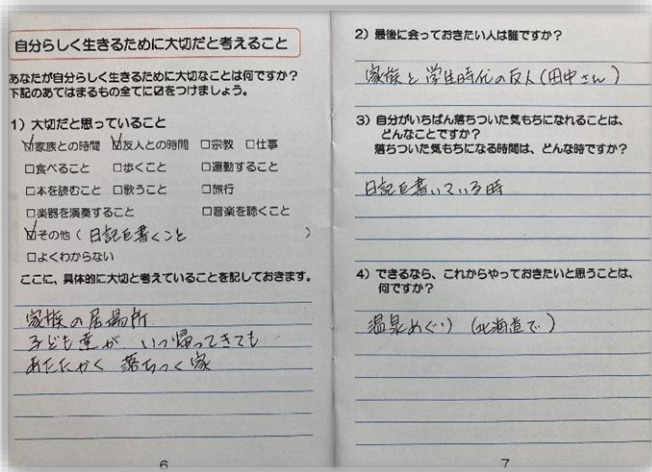 自分らしく生きるために大切だと考えること
あなたが自分らしく生きるために大切なことは何ですか?
下記のあてはまるもの全てに☑をつけましょう。
1) 大切だと思っていること
☑家族との時間 ☑友人との時間 □宗教 □仕事
□食べること □歩くこと □運動すること
□本を読むこと □歌うこと □旅行
□楽器を演奏すること □音楽を聴くこと
☑その他(日記を書くこと)
□よくわからない
ここに、具体的に大切と考えていることを記しておきます。
家族の居場所
子ども達が、いつ帰ってきても
あたたかく 落ちつく家
6
2) 最後に会っておきたい人は誰ですか?
家族と学生時代の友人(田中さん)
3) 自分がいちばん落ちついた気もちになれることは、
どんなことですか?
落ちついた気もちになる時間は、どんな時ですか?
日記を書いている時
4) できるなら、これからやっておきたいと思うことは、
何ですか?
温泉めぐり(北海道で)
7